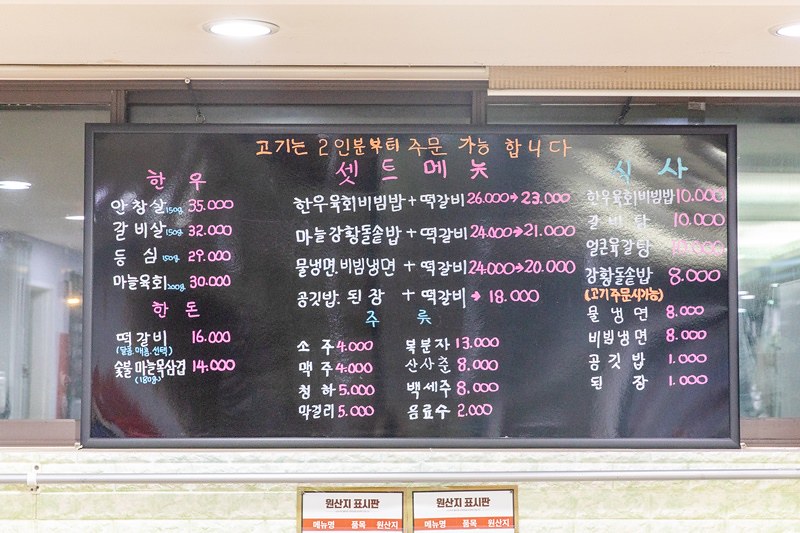 고기는 2인분부터 주문 가능 합니다
한우
안창살 150g 35.000
갈비살 150g 32.000
등심 150g 29.000
마늘육회 200g 30.000
한돈
떡갈비 16.000
(달콤.매콤.선택)
숯불 마늘목삼겹 14.000
(180g)
셋트메뉴
한우육회비빔밥 + 떡갈비 26.000→23.000
마늘강황돌솥밥 + 떡갈비 24.000→21.000
물냉면.비빔냉면 + 떡갈비 24.000→20.000
공깃밥. 된장 + 떡갈비 → 18.000
주류
소주 4.000
맥주 4.000
청하 5.000
막걸리 5.000
복분자 13.000
산사춘 8.000
백세주 8.000
음료수 2.000
식사
한우육회비빔밥 10.000
갈비탕 10.000
얼큰육갈탕
강황돌솥밥 8.000
(고기주문시가능)
물냉면 8.000
비빔냉면 8.000
공깃밥 1.000
된장 1.000
원산지 표시판
메뉴명 품목 원산지
원산지 표시판
메뉴명 품목 원산지